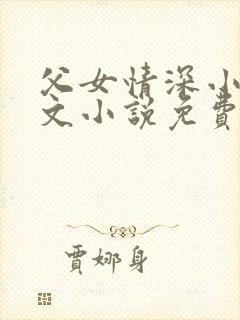 父女情深小
文小説免費
賈娜身